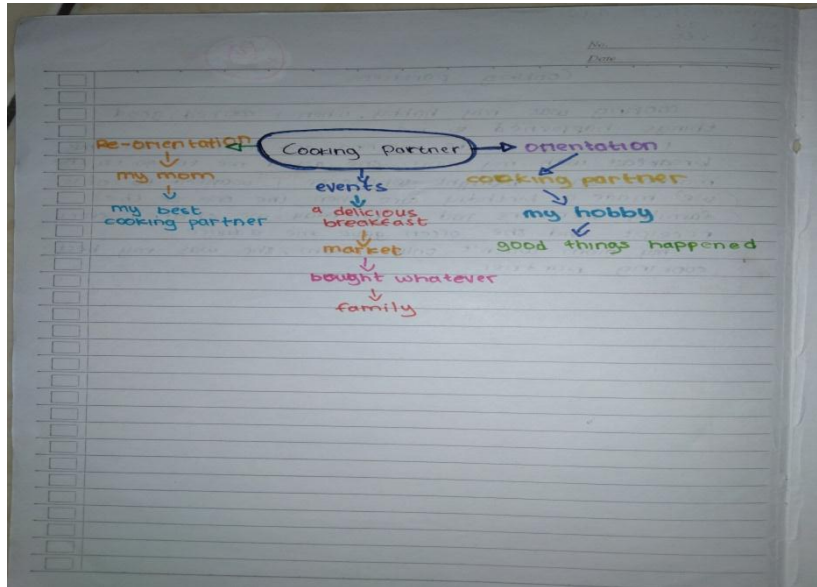 No.
Date
Cooking Partner
Re-orientation
my mom
my best
cooking partner
events
a delicious
breakfast
market
bought whatever
family
orientation
cooking partner
my hobby
good things happened